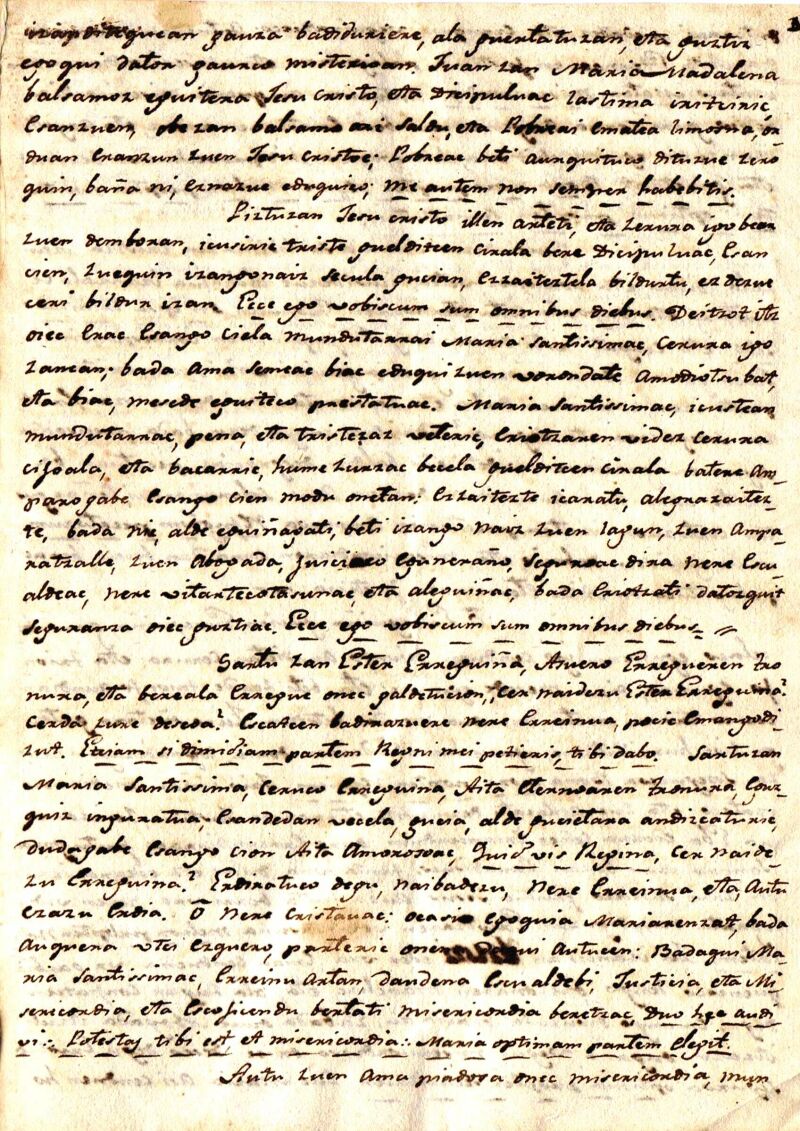 izan ditequean gauza badiduriere, ala guertatuzan, eta guztiz
egoqui dator gaurco misterioan. Juan zan Maria Madalena
balsamoz eguitera Jesu Cristo, eta Dicipuluac lastima iritciric
esanzuen, obe zan balsamo ori saldu, eta Pobreai ematea limosna, or
duan eranzun zuen Jesu Cristoc; Pobreac beti aurquituco dituzue zero
quin, baña ni, eznazue eduquico; me autem non semper habebitis.
Piztuzan Jesu Cristo illen arteti, eta zerura igo bear
zuen demboran, icusiric triste guelditcen cirala bere Dicipuluac, esan
cien, zuequin izangonaiz secula gucian, ezzaiteztela bildurtu, ez dezue
ceri bildur izan. Ecce ego vobiscum sum omnibus diebus. Deitzot itz
oiec erac esango ciela mundutarrai Maria Santissimac, cerura igo
zanean; bada Ama semeac biac eduqui zuen vorondate amodiotsu bat,
eta biac, mesede eguiteco prestatuac. Maria Santissimac, icustean
mundutarrac, pena, eta tristezaz veteric, eriotzaren videz cerura
cijoala, eta bacarric, hume zurzac becela guelditcen cirala batere am-
paro gabe esango cien modu onetan: Ezzaitezte icaratu, alegrazaitez-
te, bada nic, alde eguiñagati, beti izango naiz zuen lagun, zuen Ampa-
ratzalle, zuen Abogada, juicioco eguneraño, seguruac dira nere escu-
aldeac, nere vitartecotasunac, eta aleguiñac, bada eriotzati datorquit
seguranza oiec guztiac. Ecce ego vobiscum sum omnibus diebus.
Sartu zan Ester Erreguiña, Asuero Erregueren tro
nura, eta bereala Erregue onec galdetucion, cer naidezu Ester Erreguina?
Cerda zure deseoa? Escatcen badirazuere nere Erreinua, pocic emangodi
zut. Etiam si dimidiam partem Regni mei petieris, tibi dabo. Sartuzan
Maria Santissima, ceruco Erreguina, Aita Eternoaren tronura, Gor-
quiz inguratua, esandedan vecela, gucia, alde gucietara andizcaturic,
Duda gabe esango cion Aita Amorosoac, Quid vis Regina, cer naide-
zu Erreguina? Erdiratuco degu, naibadezu, nere Erreinua, eta, Autu
ezazu erdia. O nere cristauac: ocasio egoquia Mariarenzat, bada
Auquera utci ezquero, parteric onena egoqui autucen: Badaqui Ma-
ria Santissimac, Erreinu artan, daudena escualdebi, Justicia, eta Mi-
sericordia, eta escojicendu bertati misericordia beretzac, Duo hec audi
vi: Potestas tibi est, et misericordia: Maria optimam partem elegit.
Autu zuen Ama piadosa onec misericordia, mun